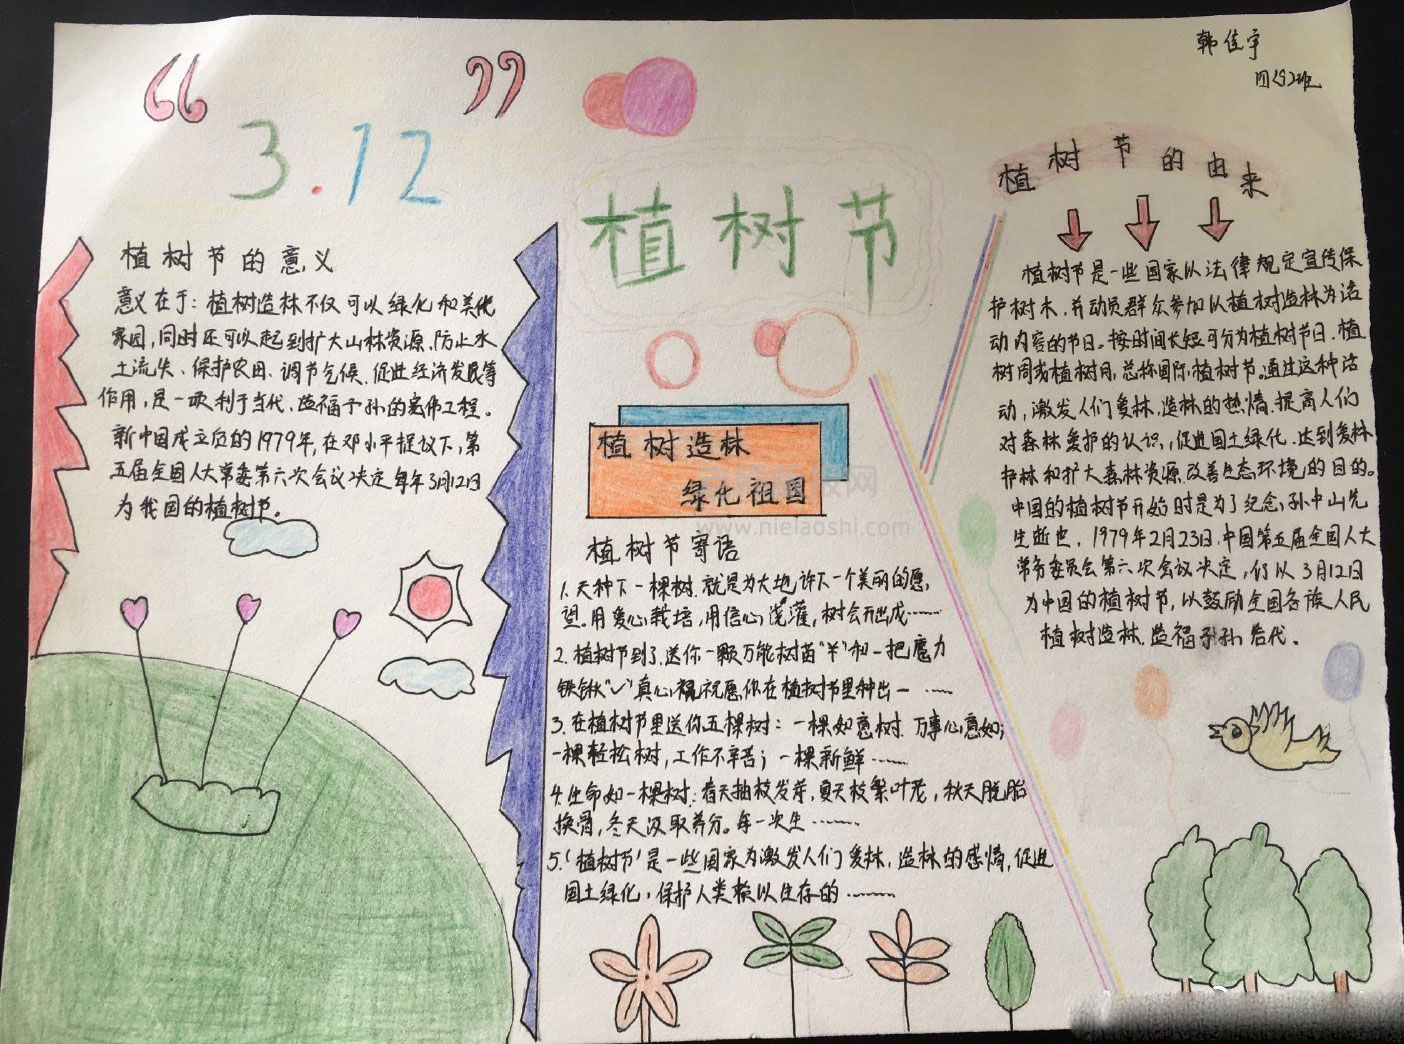 韩佳宇
四(5)班
“ ”
3.12
植树节
植树节的意义
意义在于：植树造林不仅可以绿化和美化
家园，同时还可以起到扩大山林资源、防止水
土流失、保护农田、调节气候、促进经济发展等
作用，是一项利于当代、造福子孙的宏伟工程。
新中国成立后的1979年，在邓小平提议下，第
五届全国人大常委第六次会议决定每年3月12日
为我国的植树节。
植树造林
绿化祖国
www.nielaoshi.com
植树节寄语
1.天种下一棵树，就是为大地许下一个美丽的愿
望。用爱心栽培，用信心浇灌，树会开出成……
2.植树节到了，送你一颗万能树苗“羊”和一把魔力
铁锹“√”真心祝愿你在植树节里种出一……
3.在植树节里送你五棵树：一棵如意树，万事心意如；
一棵轻松树，工作不辛苦；一棵新鲜……
4.生命如一棵树：春天抽枝发芽，夏天枝繁叶茂，秋天脱胎
换骨，冬天汲取养分。每一次生……
5.‘植树节’是一些国家为激发人们爱林，造林的感情，促进
国土绿化，保护人类赖以生存的……
植树节的由来
植树节是一些国家以法律规定宣传保
护树木，并动员群众参加以植树造林为活
动内容的节日。按时间长短可分为植树节日、植
树周或植树月，总称国际植树节。通过这种活
动，激发人们爱林、造林的热情、提高人们
对森林爱护的认识，促进国土绿化，达到爱林
护林和扩大森林资源、改善生态环境的目的。
中国的植树节开始时是为了纪念孙中山先
生逝世，1979年2月23日，中国第五届全国人大
常务委员会第六次会议决定，仍以3月12日
为中国的植树节，以鼓励全国各族人民
植树造林，造福子孙后代。